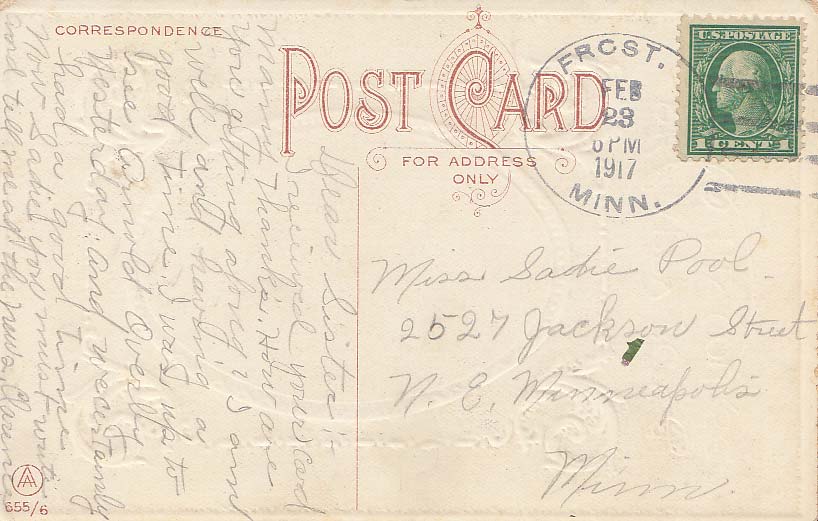 CORRESPONDENCE
POST CARD
FOR ADDRESS
ONLY
FROST.
FEB
23
6 PM
1917
MINN.
U.S. POSTAGE
1 CENT 1
Dear Sister:
I received your card
Many Thanks. How are
you getting along I am
well and having a
good time. I was up to
see Arnold Overby
Yesterday and we certainly
had a good time.
Now Sadie you must write
and tell me all the news. Clarence
Miss Sadie Pool.
2527 Jackson Street
N. E. Minneapolis
Minn.
AA
655/6